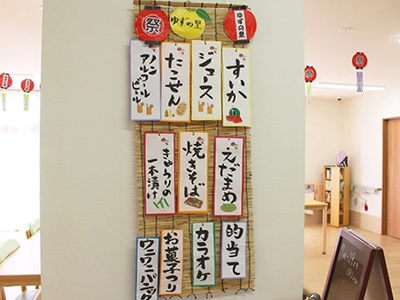 祭
ゆずの里
ゆずの里
すいか
ジュース
たこせん
ノンアルコール
ビール
えだまめ
焼きそば
きゅうりの
一本漬け
的当て
カラオケ
お菓子つり
ワニワニパニック